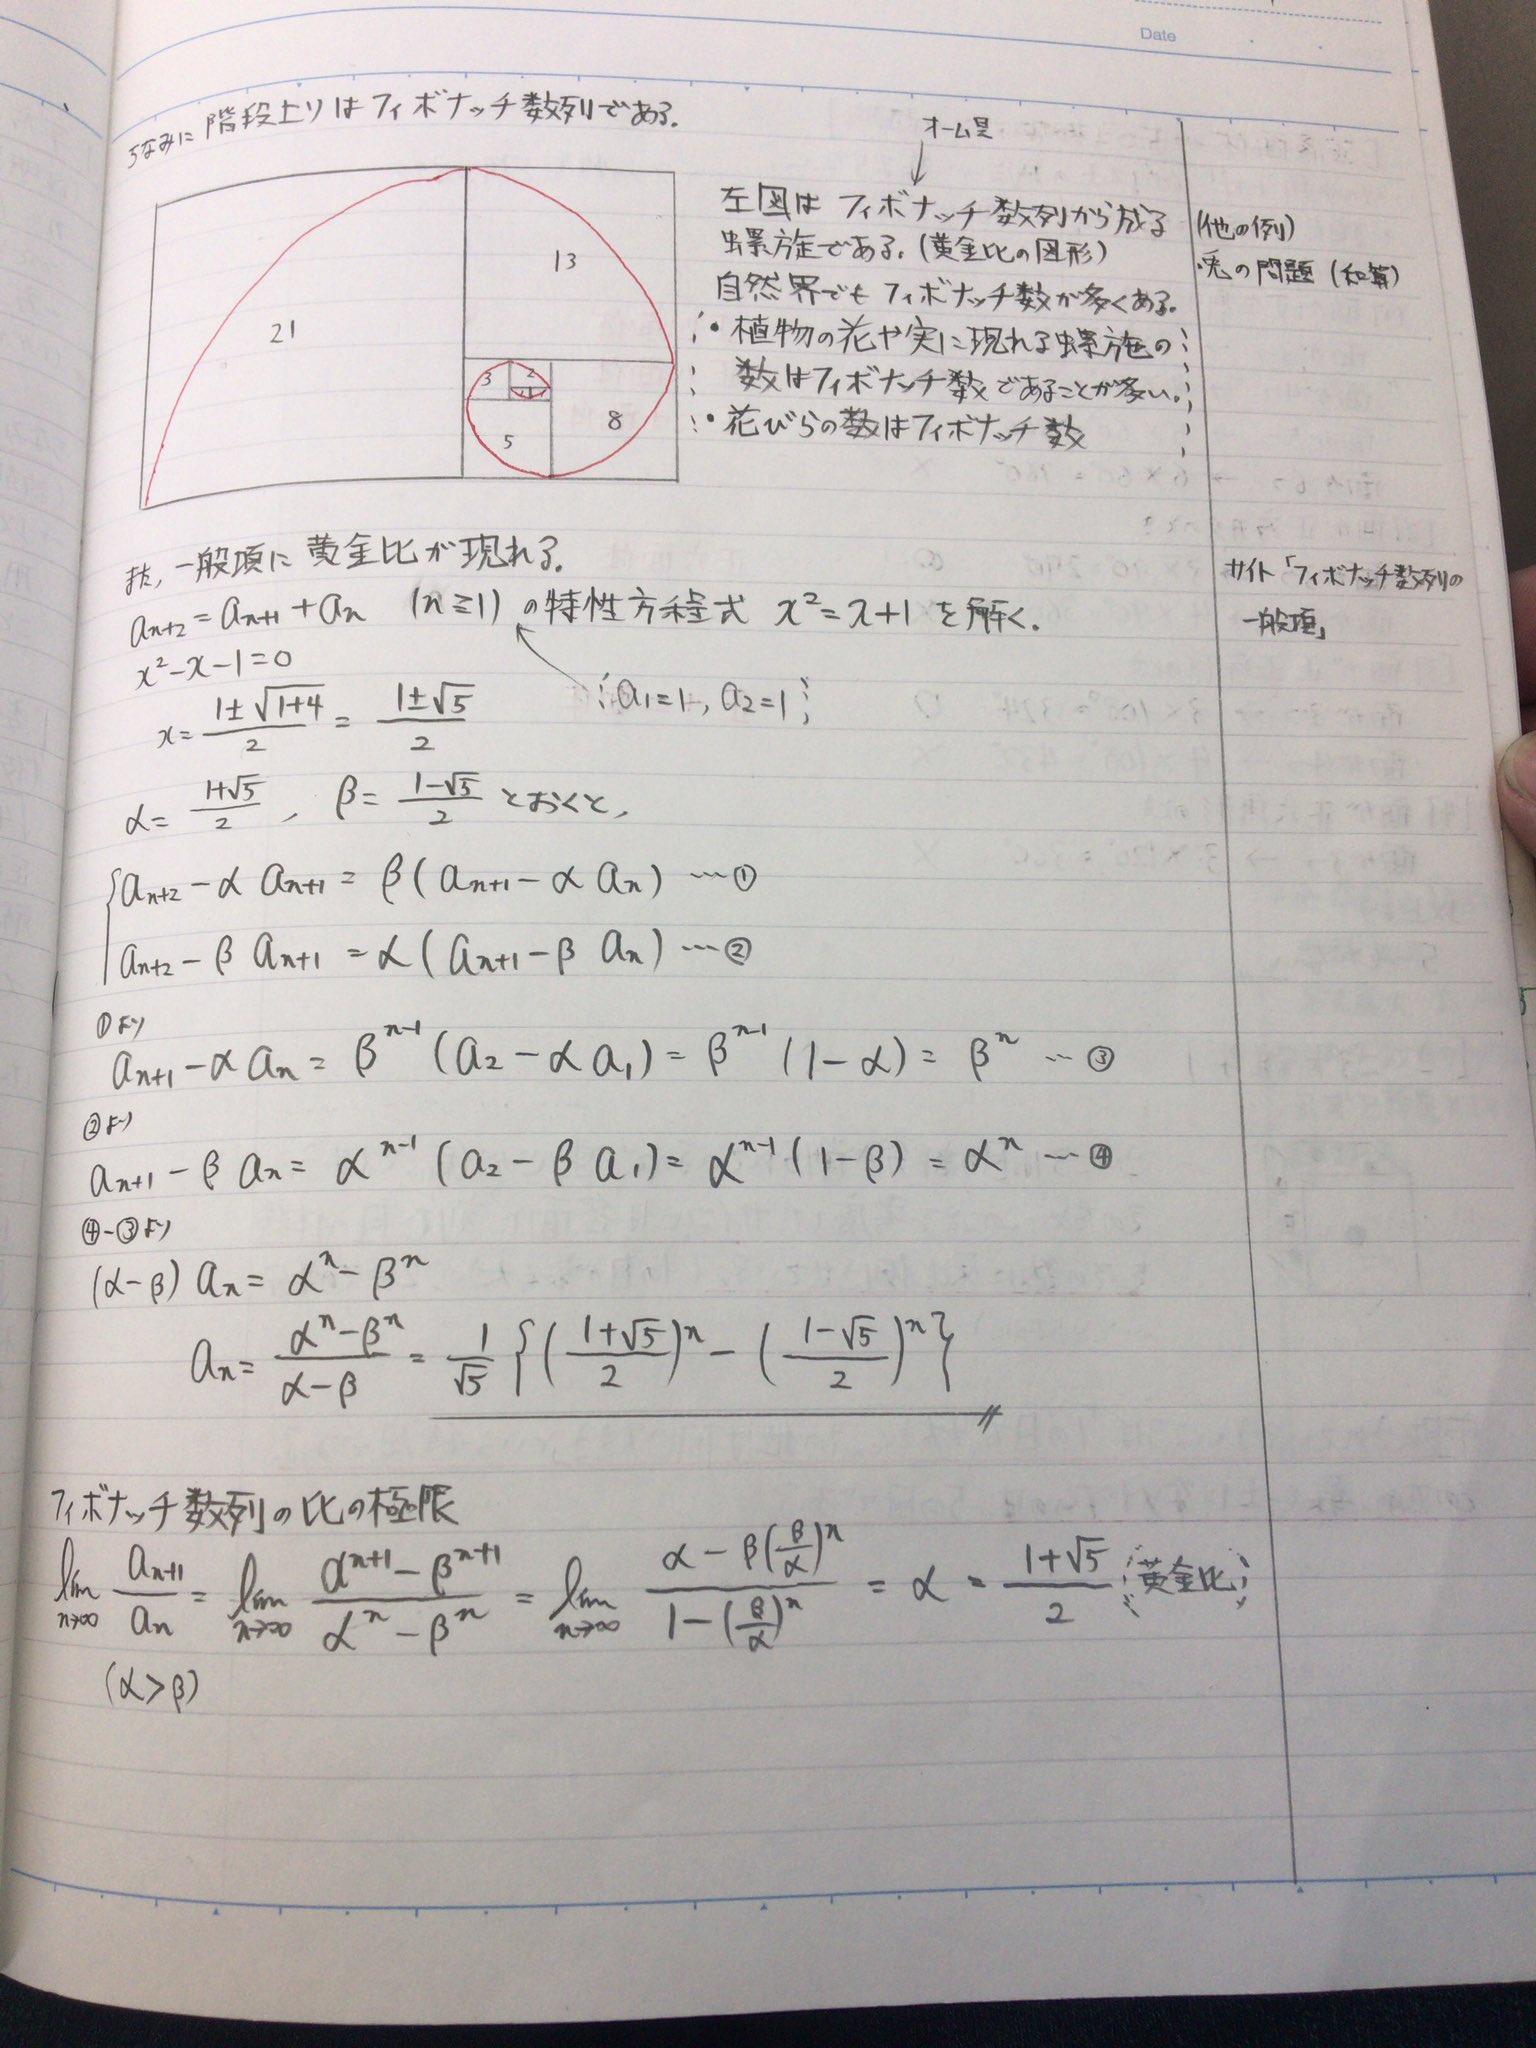 Date
ちなみに 階段上りはフィボナッチ数列である。
オーム貝
21
13
3
2
1
5
8
左図は フィボナッチ数列から成る
螺旋である。(黄金比の図形)
自然界でもフィボナッチ数が多くある。
・植物の花や実に現れる螺旋の
数はフィボナッチ数であることが多い。
・花びらの数はフィボナッチ数
(他の例)
・兎の問題 (和算)
また, 一般項に 黄金比が現れる。
aₙ₊₂ = aₙ₊₁ + aₙ (n≧1) の特性方程式 x² = x+1 を解く。
x² - x - 1 = 0
x = (1±√(1+4))/2 = (1±√5)/2
a₁=1, a₂=1
サイト「フィボナッチ数列の
一般項」
α = (1+√5)/2 , β = (1-√5)/2 とおくと,
aₙ₊₂ - α aₙ₊₁ = β(aₙ₊₁ - α aₙ) … ①
aₙ₊₂ - β aₙ₊₁ = α(aₙ₊₁ - β aₙ) … ②
①より
aₙ₊₁ - α aₙ = βⁿ⁻¹(a₂ - α a₁) = βⁿ⁻¹(1-α) = βⁿ … ③
②より
aₙ₊₁ - β aₙ = αⁿ⁻¹(a₂ - β a₁) = αⁿ⁻¹(1-β) = αⁿ … ④
④-③より
(α-β) aₙ = αⁿ - βⁿ
aₙ = (αⁿ-βⁿ)/(α-β) = 1/√5 {((1+√5)/2)ⁿ - ((1-√5)/2)ⁿ}
フィボナッチ数列の比の極限
lim n→∞ aₙ₊₁/aₙ = lim n→∞ (αⁿ⁺¹-βⁿ⁺¹)/(αⁿ-βⁿ) = lim n→∞ (α-β(β/α)ⁿ)/(1-(β/α)ⁿ) = α = (1+√5)/2 黄金比
(α>β)